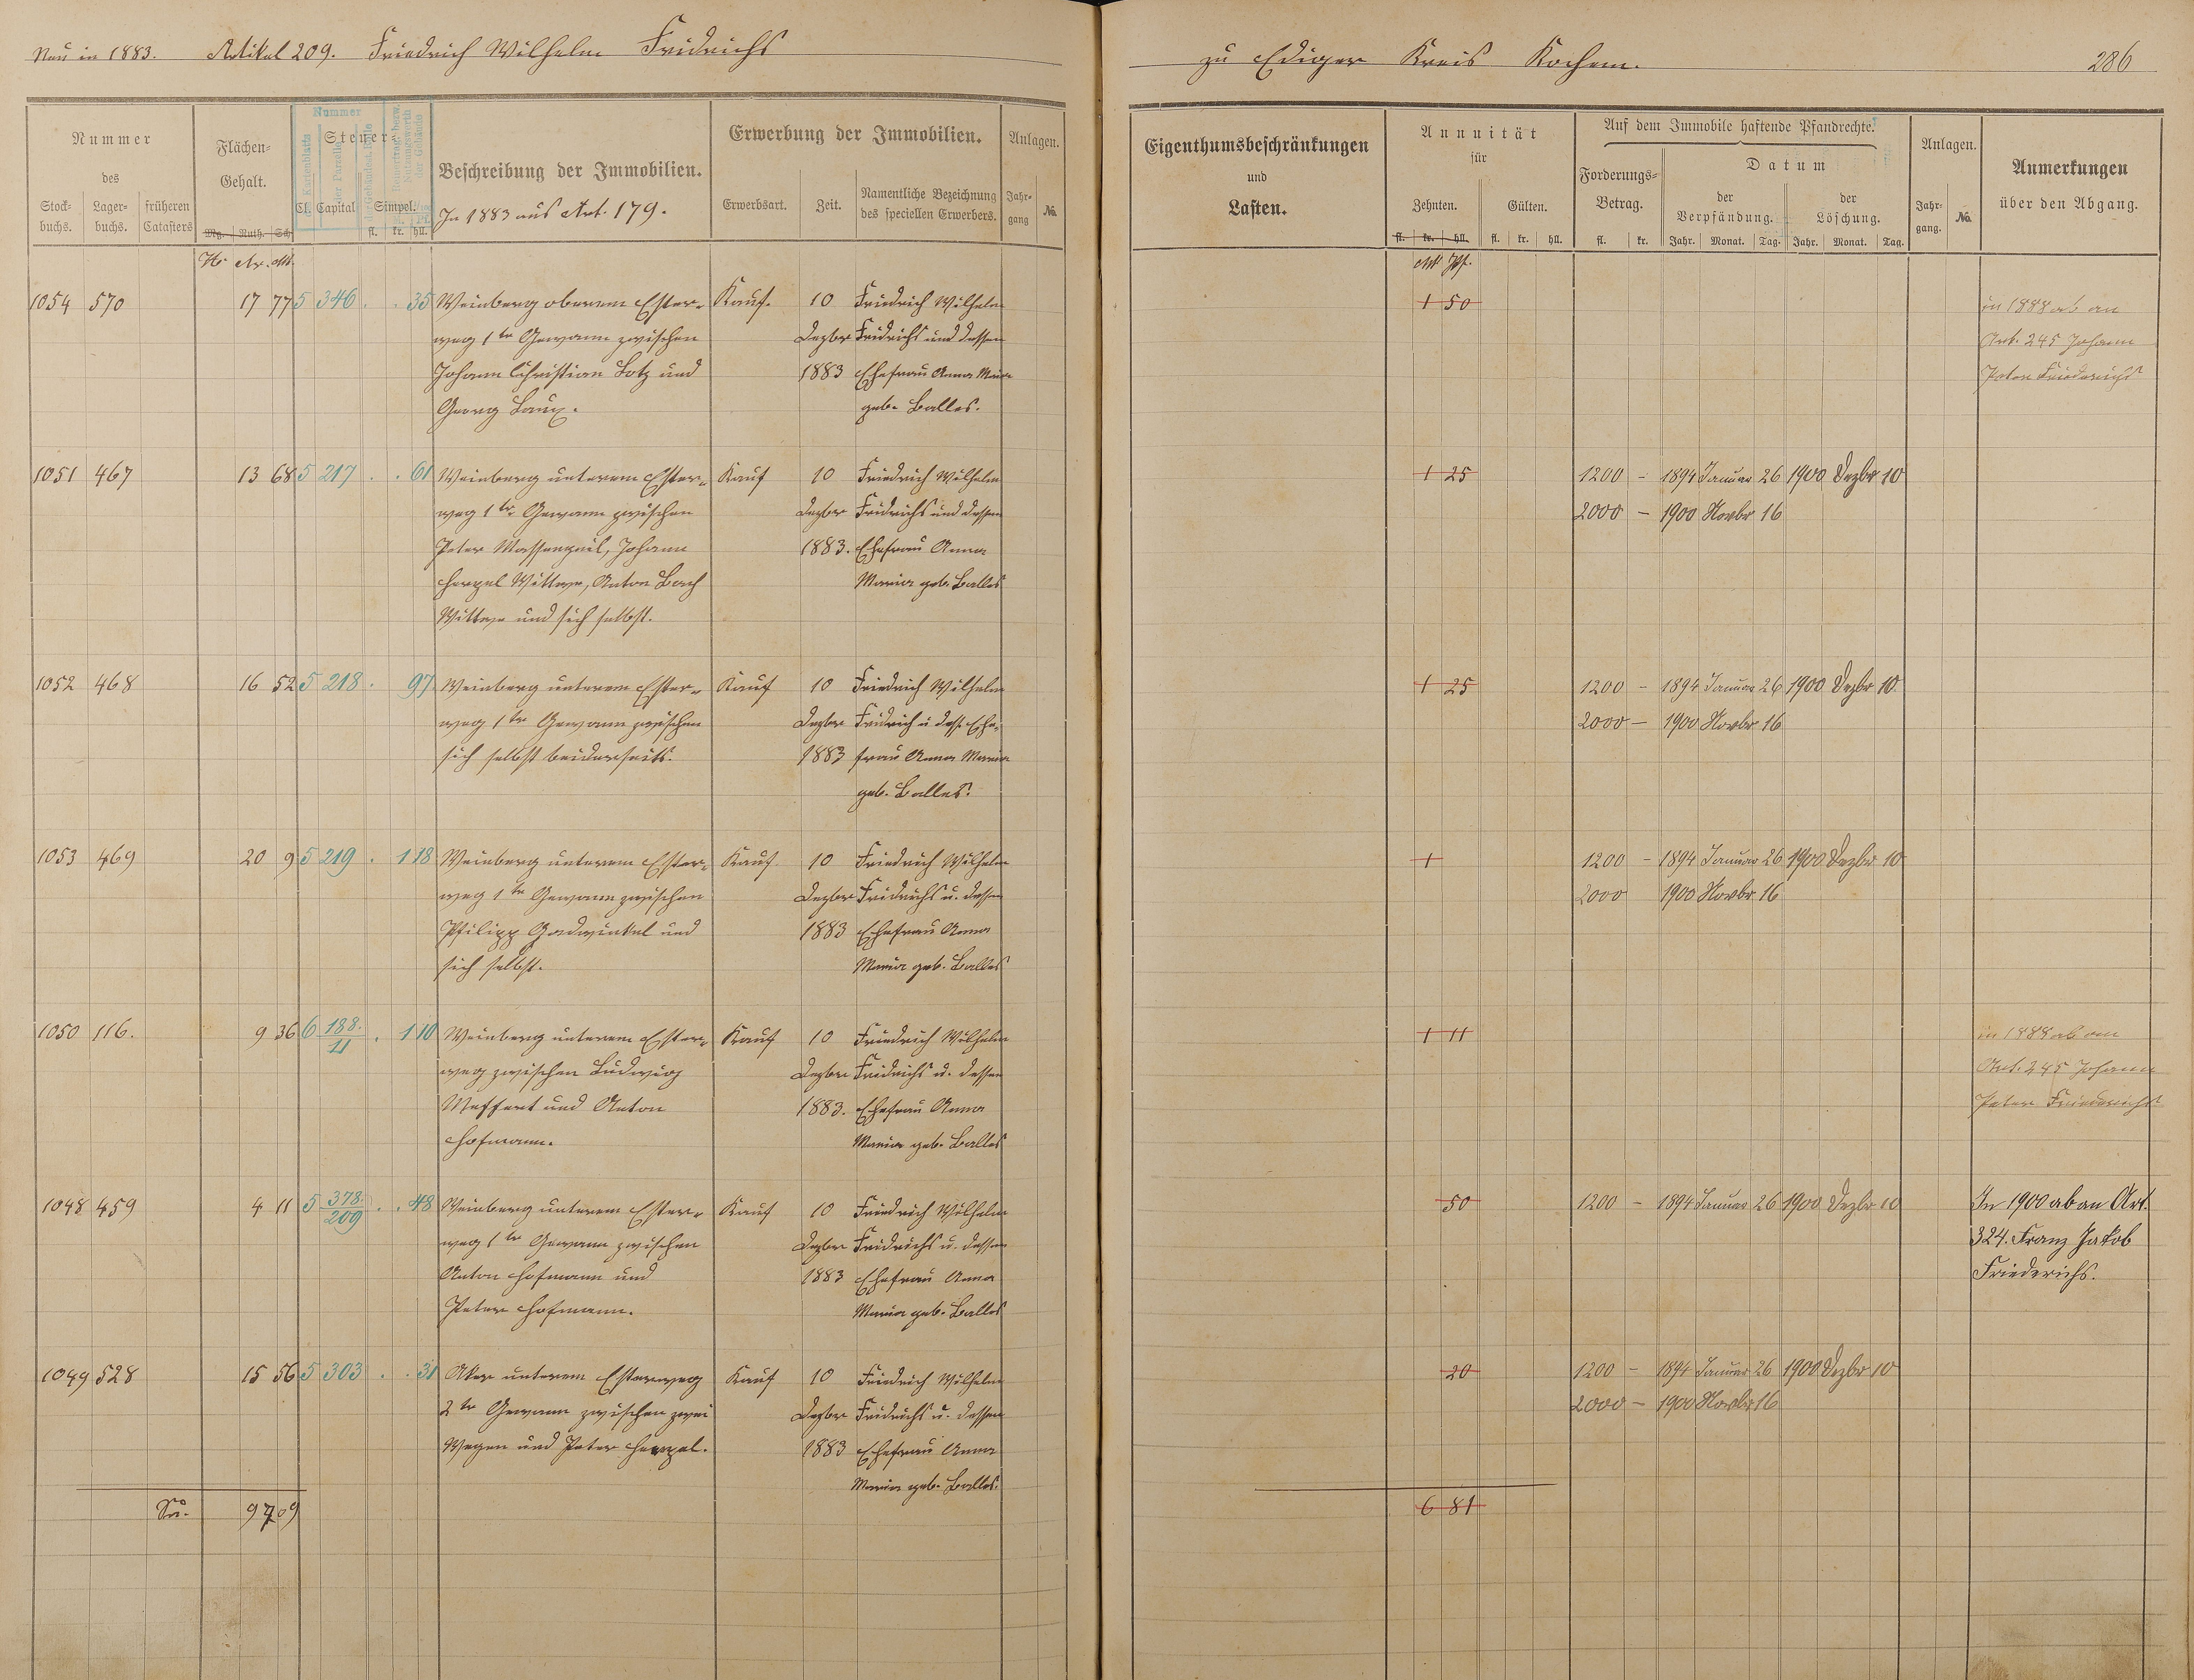 Neu in 1883. Artikel 209. Friedrich Wilhelm Fridrichs
zu Ediger Kreis Kochem. 286
Nummer
des
Stock-buchs. Lager-buchs. früheren Catasters
Flächen-Gehalt.
Mg. Ruth. Sch
Nummer
Steuer-
Cl. Capital Simpel.
fl. kr. hll.
Beschreibung der Immobilien.
In 1883 aus Art. 179.
Erwerbung der Immobilien.
Erwerbsart. Zeit. Namentliche Bezeichnung des speciellen Erwerbers.
Anlagen.
Jahr-gang No.
Eigenthumsbeschränkungen
und
Lasten.
Annuität
für
Zehnten. Gülten.
fl. kr. hll. fl. kr. hll.
Auf dem Immobile haftende Pfandrechte.
Forderungs-Betrag.
fl. kr.
Datum
der Verpfändung. der Löschung.
Jahr. Monat. Tag. Jahr. Monat. Tag.
Anlagen.
Jahr-gang. No.
Anmerkungen
über den Abgang.
Hr Ar. M.
Mk Pf.
1054 570 17 77 5 346 . . 35 Weinberg oberem Ester- Kauf. 10 Friedrich Wilhelm 1 50 in 1888 ab an
weg 1te Gewann zwischen Dezber Fridrichs und dessen Art. 245 Johann
Johann Christian Lotz und 1883 Ehefrau Anna Maria Peter Friederichs
Georg Laux. geb. Balles.
1051 467 13 68 5 217 . . 61 Weinberg unterem Ester- Kauf 10 Friedrich Wilhelm 1 25 1200 - 1894 Januar 26 1900 Dezbr 10
weg 1te Gewann zwischen Dezber Fridrichs und dessen 2000 - 1900 Novbr 16
Peter Massengeil, Johann 1883. Ehefrau Anna
Hergel Wittwe, Anton Bach Maria geb. Balles
Wittwe und sich selbst.
1052 468 16 52 5 218 . 97 Weinberg unterem Ester- Kauf 10 Friedrich Wilhelm 1 25 1200 - 1894 Januar 26 1900 Dezbr 10
weg 1te Gewann zwischen Dezber Fridrich u dess. Ehe- 2000 - 1900 Novbr 16
sich selbst beiderseits. 1883 frau Anna Maria
geb. Balles.
1053 469 20 9 5 219 . 1 18 Weinberg unterem Ester- Kauf 10 Friedrich Wilhelm 1 1200 - 1894 Januar 26 1900 Dezbr 10
weg 1te Gewann zwischen Dezber Fridrichs u. dessen 2000 1900 Novbr 16
Philipp Gadwinkel und 1883 Ehefrau Anna
sich selbst. Maria geb. Balles
1050 116. 9 36 6 188./11 . 1 10 Weinberg unterem Ester- Kauf 10 Friedrich Wilhelm 1 11 in 1888 ab an
weg zwischen Ludwig Dezber Fridrichs u. dessen Art. 245 Johann
Meffert und Anton 1883. Ehefrau Anna Peter Friederichs
Hofmann. Maria geb. Balles
1048 459 4 11 5 378./209 . . 48 Weinberg unterem Ester- Kauf 10 Friedrich Wilhelm 50 1200 - 1894 Januar 26 1900 Dezbr 10 In 1900 ab an Art.
weg 1te Gewann zwischen Dezber Fridrichs u. dessen 324. Franz Jakob
Anton Hofmann und 1883 Ehefrau Anna Friederichs.
Peter Hofmann. Maria geb. Balles
1049 528 15 56 5 303 . . 31 Aker unterem Esterweg Kauf 10 Friedrich Wilhelm 20 1200 - 1894 Januar 26 1900 Dezbr 10
2te Gewann zwischen zwei Dezber Fridrichs u. dessen 2000 - 1900 Novbr 16
Wegen und Peter Hergel. 1883 Ehefrau Anna
Maria geb. Balles.
Sa. 97 09 6 81